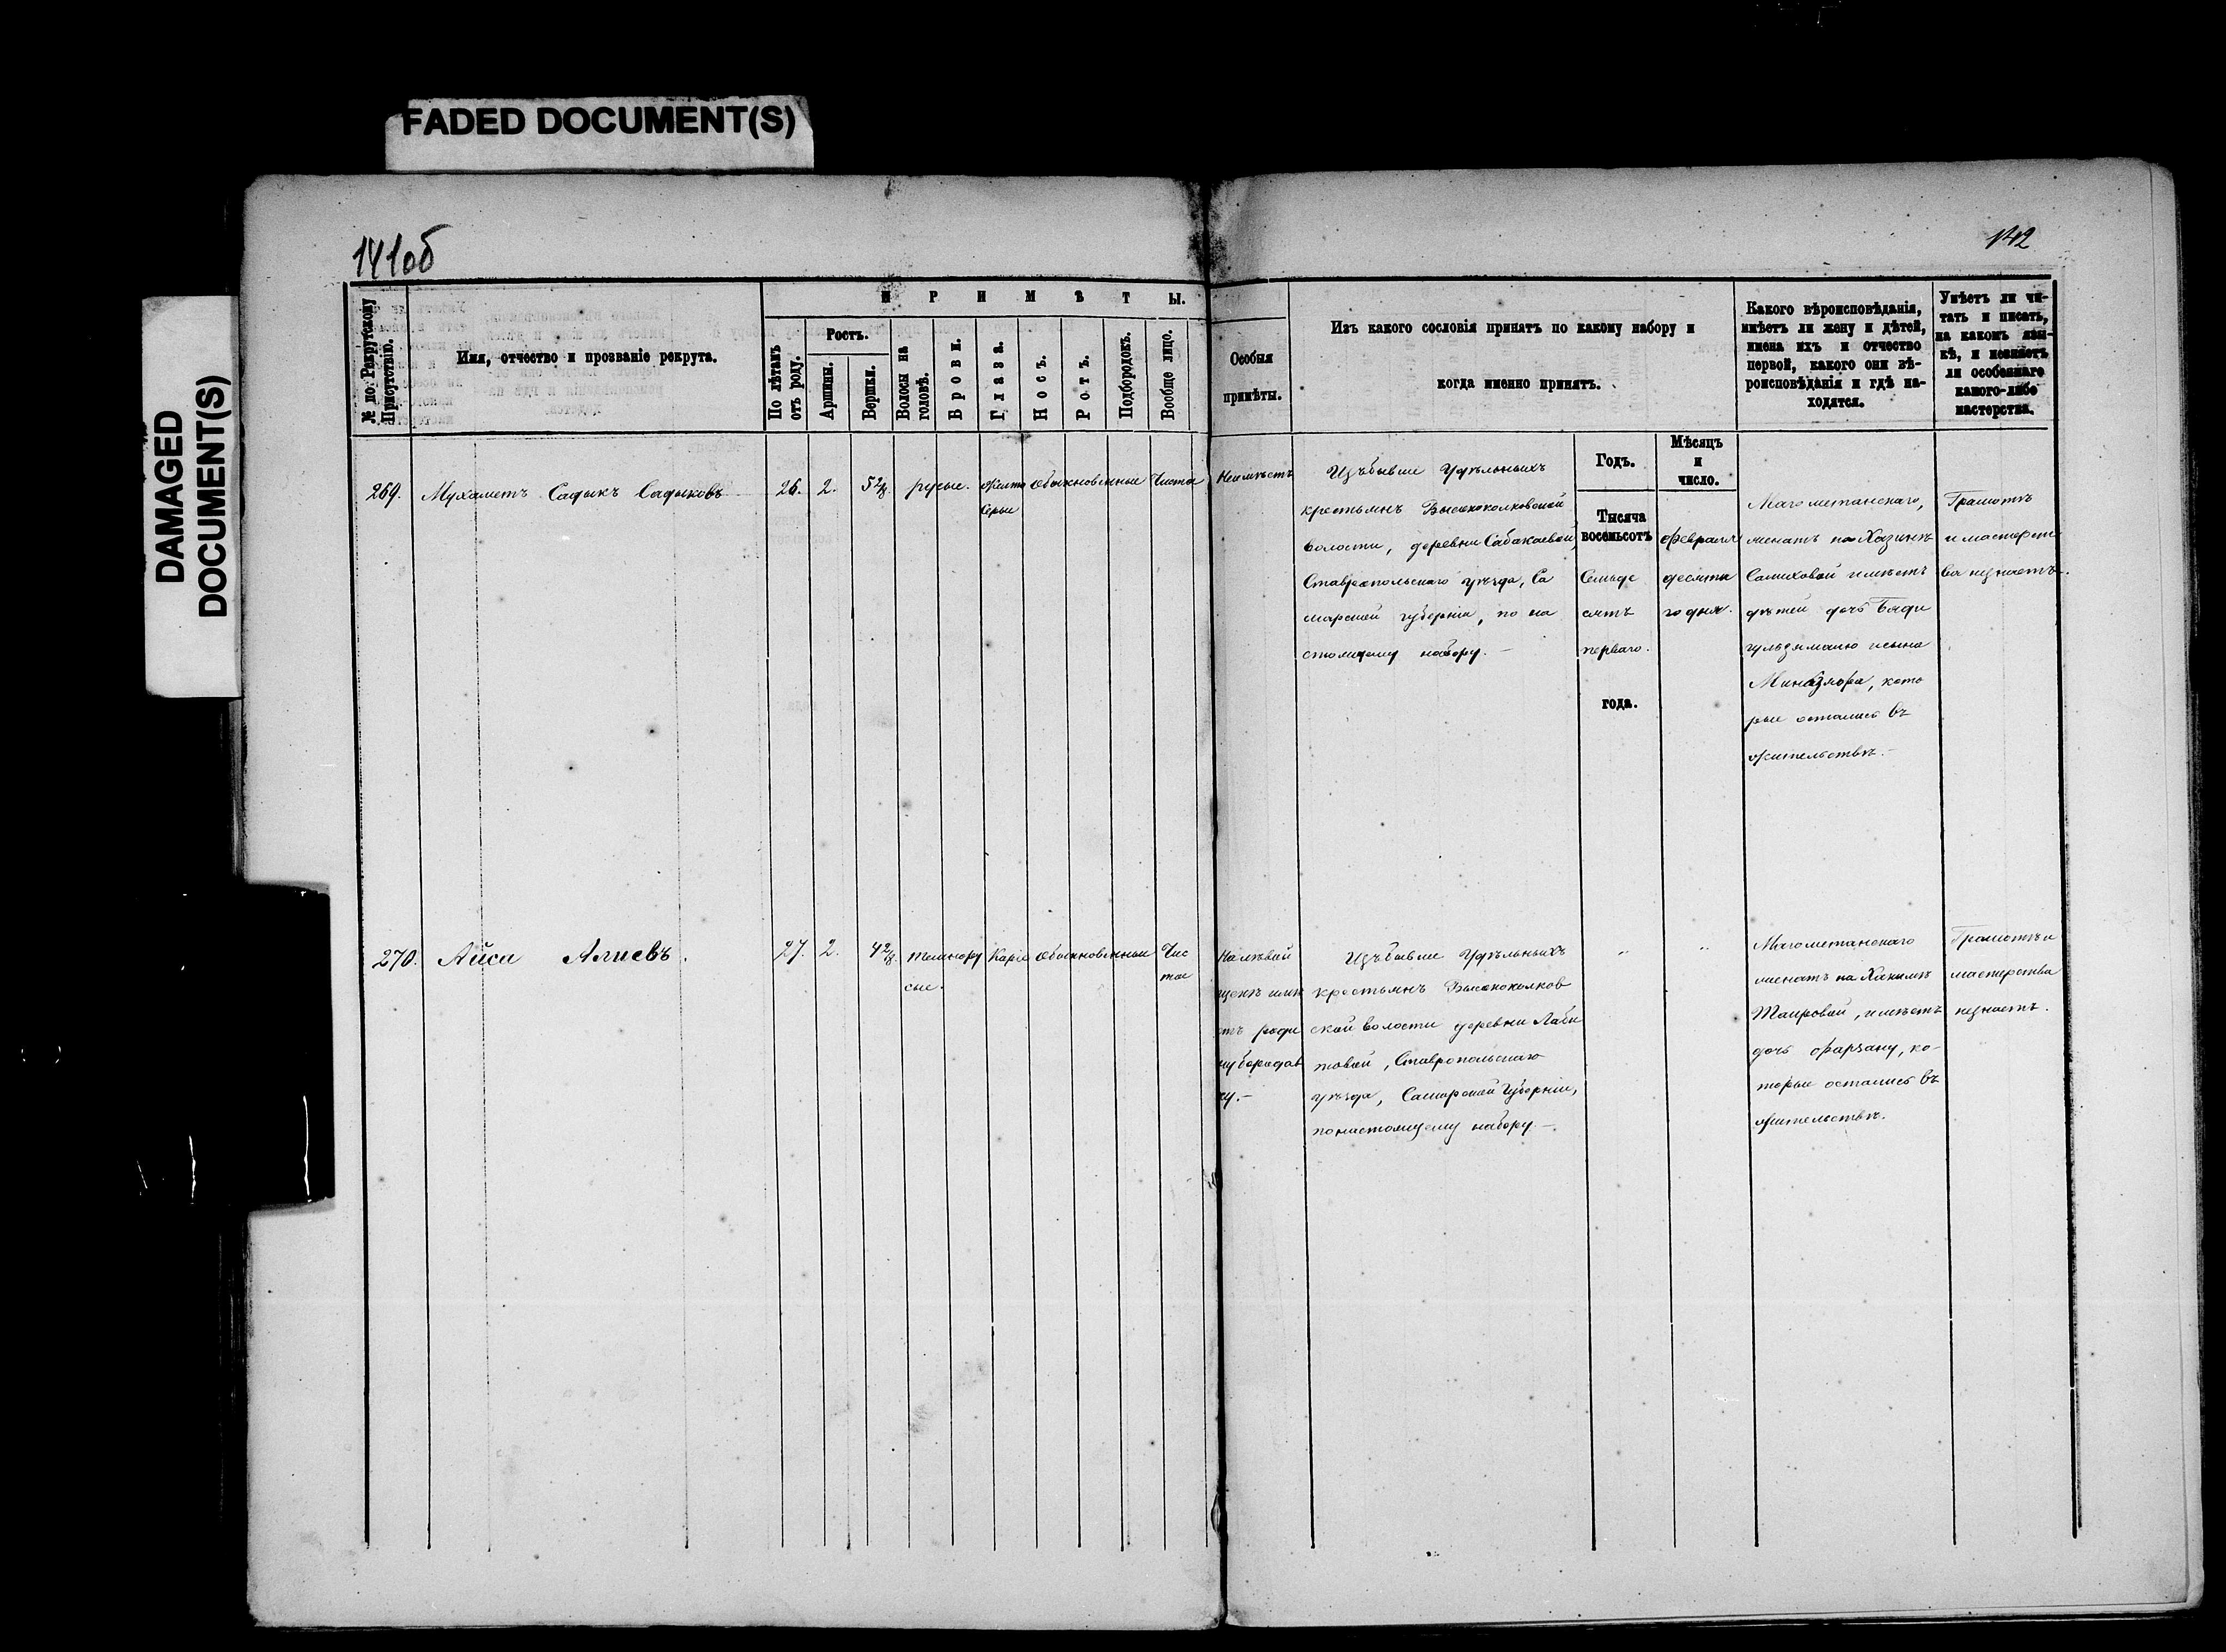 FADED DOCUMENT(S)
DAMAGED
DOCUMENT(S)
141об
142
№ по Рекрутскому
Присутствію.
Имя, отчество и прозваніе рекрута.
П Р И М Ѣ Т Ы.
По лѣтамъ
отъ роду.
Ростъ.
Аршины.
Вершки.
Волосы на
головѣ.
Брови.
Глаза.
Носъ.
Ротъ.
Подбородокъ.
Вообще лицо.
Особыя
примѣты.
Изъ какого сословія принятъ по какому набору и
когда именно принятъ.
Какого вѣроисповѣданія,
имѣетъ ли жену и дѣтей,
имена ихъ и отчество
первой, какого они вѣ-
роисповѣданія и гдѣ на-
ходятся.
Умѣетъ ли чи-
тать и писать,
на какомъ язы-
кѣ, и незнаетъ
ли особеннаго
какого-либо
мастерства.
Годъ.
Мѣсяцъ
и
число.
269.
Мухаметъ Садыкъ Садыковъ
26.
2.
5 2/8
русые.
Желто
серые
Обыкновенные
Чистое
Неимѣетъ
Изъ бывше Удѣльныхъ
крестьянъ Высококолковской
волости, деревни Сабакаевой,
Ставропольскаго уѣзда, Са
марской губерніи, по на
стоящему набору.
Тысяча
восемьсотъ
Семьде
сятъ
перваго.
года.
Февраля
десята
го дня.
Магометанскаго,
женатъ на Хазинѣ
Салиховой имѣетъ
дѣтей дочь Бяди
гульзямалю и сына
которые остались въ
жительствѣ.
Грамотѣ
и мастерст
ва незнаетъ.
270.
Айса Алиевъ.
27.
2.
4 2/8
темнору
сые.
Каріе
Обыкновенные
Чис
тое
На лѣвой
щекѣ имѣ
етъ роди
ну бородав
ку.
Изъ бывше Удѣльныхъ
крестьянъ Высококолков
ской волости деревни Лаби
товой, Ставропольскаго
уѣзда, Самарской Губерніи,
по настоящему набору.
"
"
Магометанскаго
женатъ на Ханимѣ
Таировой, имѣетъ
дочь Фарзану, ко-
торые остались въ
жительствѣ.
Грамотѣ и
мастерства
незнаетъ.